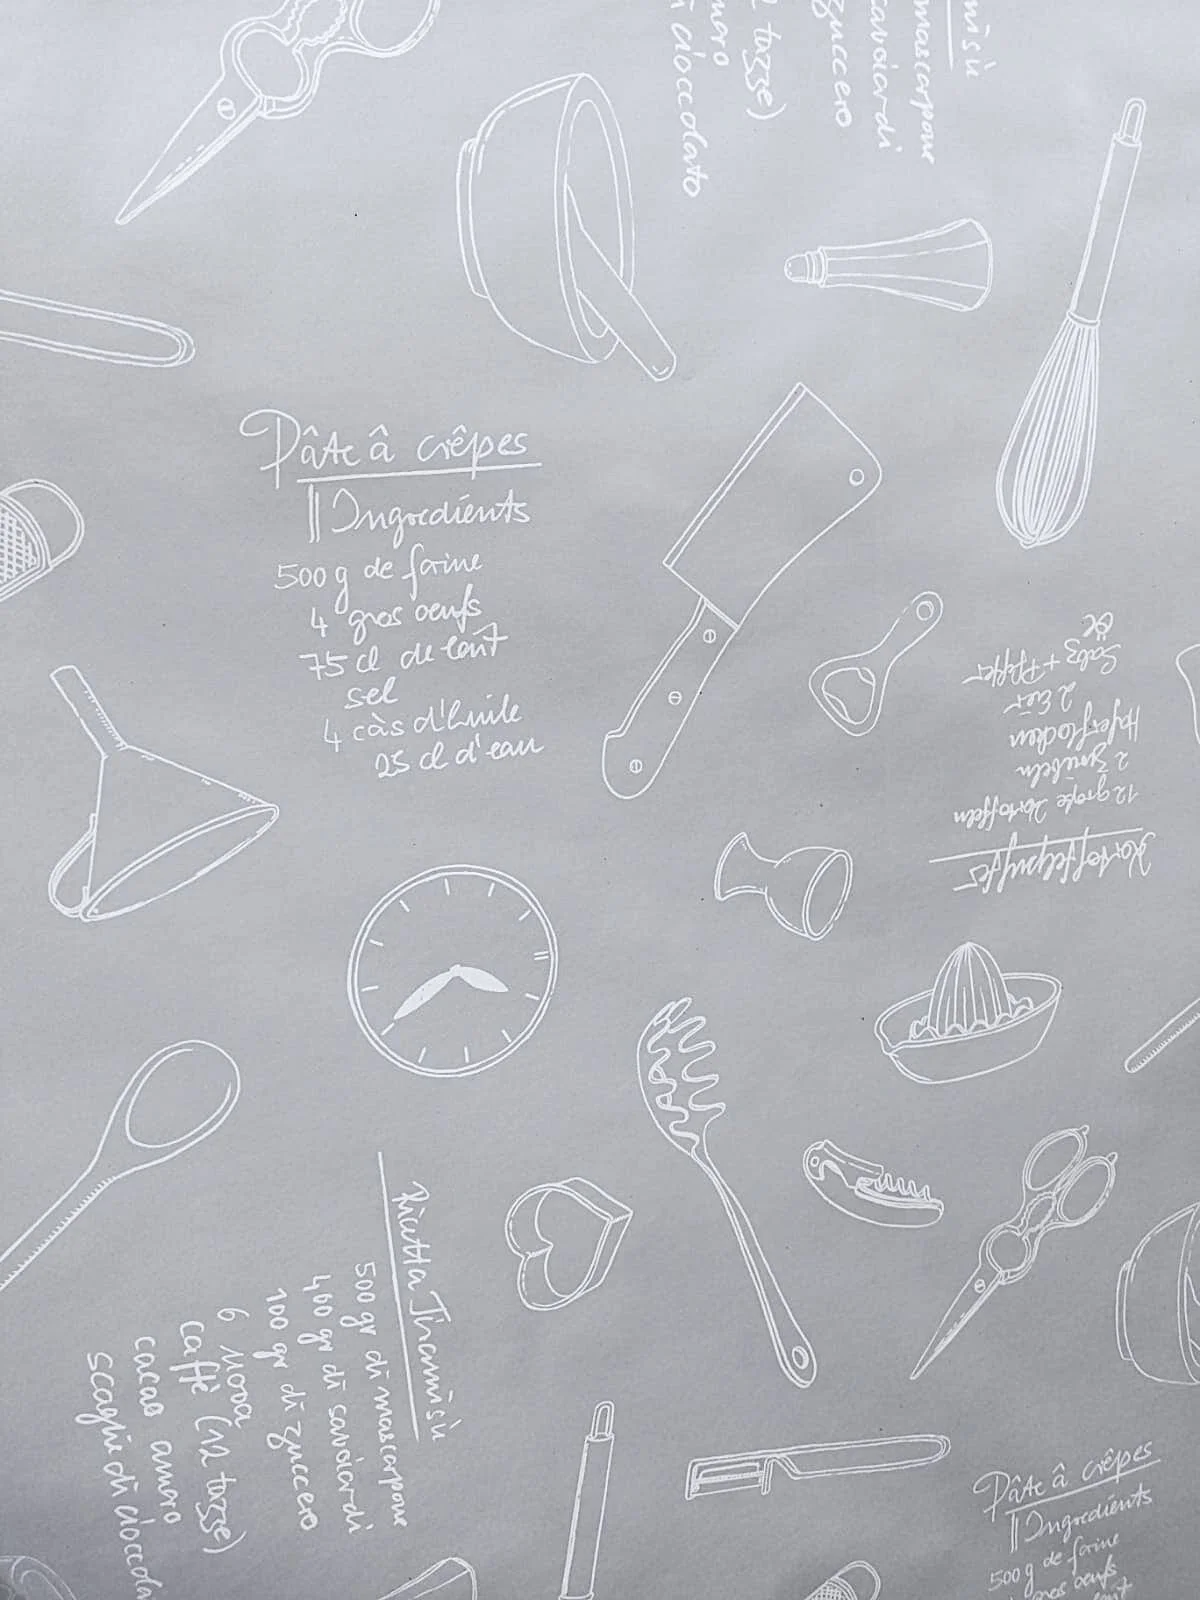 nisù
mascarpone
savoiardi
zuccero
2 tazze)
maro
i cioccolato
Pâte â crêpes
Ingredients
500 g de farine
4 gros oeufs
75 cl de lait
sel
4 càs d'huile
25 cl d'eau
Kartoffelpuffer
12 große Kartoffeln
2 Zwiebeln
Haferflocken
2 Eier
Salz + Pfeffer
Öl
Ricetta Tiramisù
500 gr di mascarpone
400 gr di savoiardi
100 gr di zuccero
6 uova
caffè (12 tazze)
cacao amaro
scaglie di cioccola
Pâte â crêpes
Ingredients
500 g de farine
gros oeufs
lait